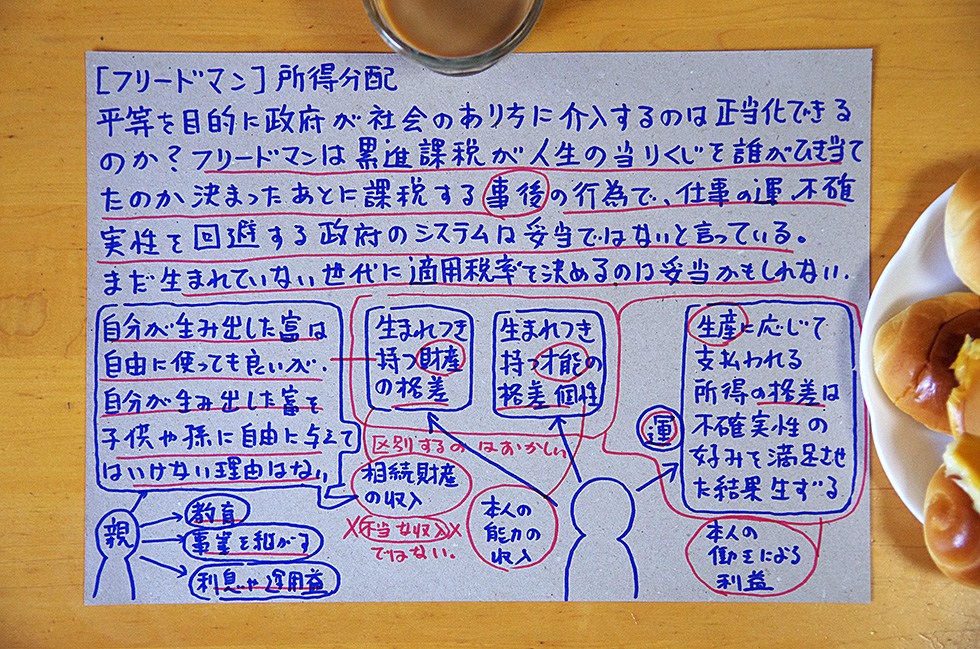 [フリードマン]所得分配
平等を目的に政府が社会のあり方に介入するのは正当化できる
のか？フリードマンは累進課税が人生の当りくじを誰がひき当て
たのか決まったあとに課税する事後の行為で、仕事の運、不確
実性を回避する政府のシステムは妥当ではないと言っている。
まだ生まれていない世代に適用税率を決めるのは妥当かもしれない.
自分が生み出した富は
自由に使っても良いが、
自分が生み出した富を
子供や孫に自由に与えて
はいけない理由はない
生まれつき
持つ財産
の格差
生まれつき
持つ才能の
格差 個性
生産に応じて
支払われる
所得の格差は
不確実性の
好みを満足させ
た結果生ずる
運
区別するのはおかしい
相続財産
の収入
X不当な収入X
ではない.
本人の
能力の
収入
本人の
働きによる
利益
親
教育
事業を継がす
利息や運用益